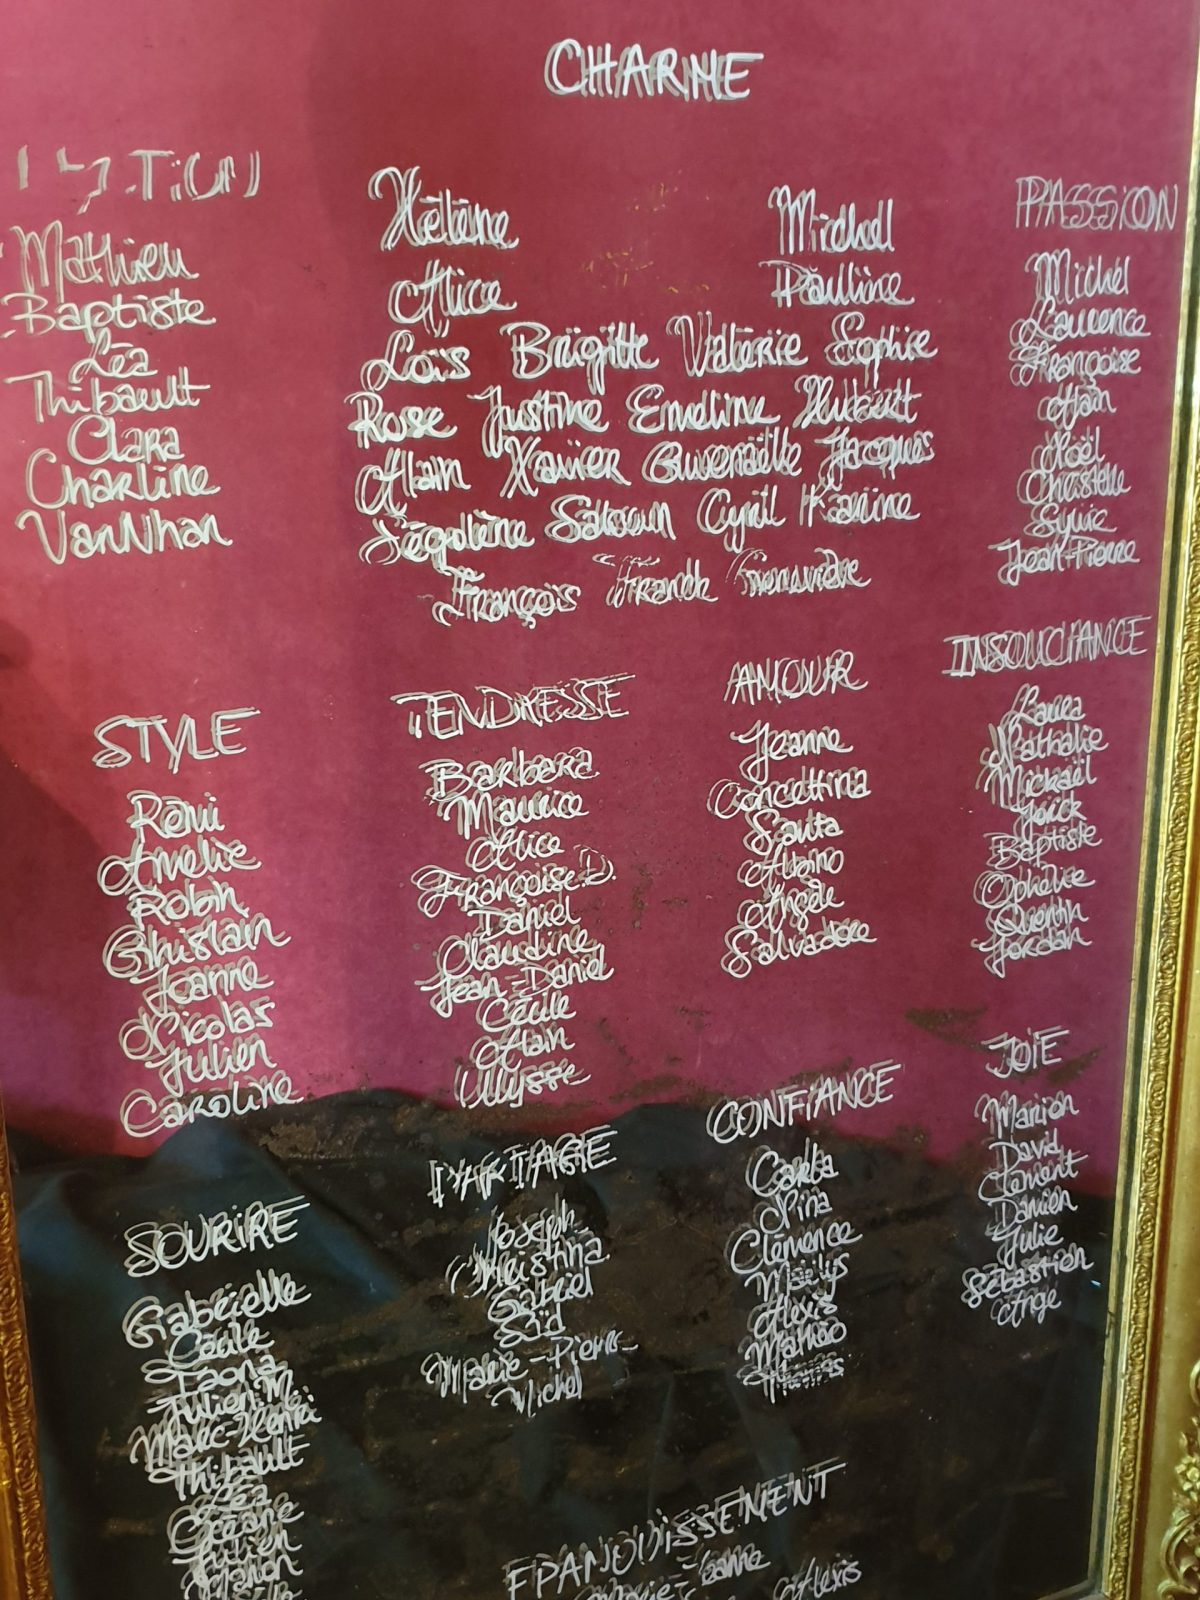 CHARME
Hélène Michel
Alice Pauline
Loïs Brigitte Valérie Sophie
Rose Justine Emeline Hubert
Alain Xavier Gwenaëlle Jacques
Ségolène Sakoun Cyril Karine
François Franck Geneviève
Mathieu
Baptiste
Léa
Thibault
Clara
Charline
VanNhan
PASSION
Michel
Laurence
Françoise
Alain
Noël
Christelle
Sylvie
Jean-Pierre
STYLE
Rémi
Amélie
Robin
Ghislain
Joanne
Nicolas
Julien
Caroline
TENDRESSE
Barbara
Maurice
Alice
Françoise.D.
Daniel
Claudine
Jean-Daniel
Cécile
Alain
Ulysse
AMOUR
Jeanne
Concettina
Santa
Angèle
Salvadore
INSOUCIANCE
Laura
Nathalie
Mickaël
Yorick
Baptiste
Ophélie
Quentin
Jordan
SOURIRE
Gabrielle
Cécile
Julien.M.
Marc-Henri
Thibault
Léa
Julien
PARTAGE
Joseph
Christina
Gabriel
Saïd
Marie-Pierre
Michel
CONFIANCE
Carla
Nina
Clémence
Maëlys
Alexis
Mathéo
Thomas
JOIE
Marion
David
Clément
Damien
Julie
Sébastien
Ange
EPANOUISSEMENT
Alexis